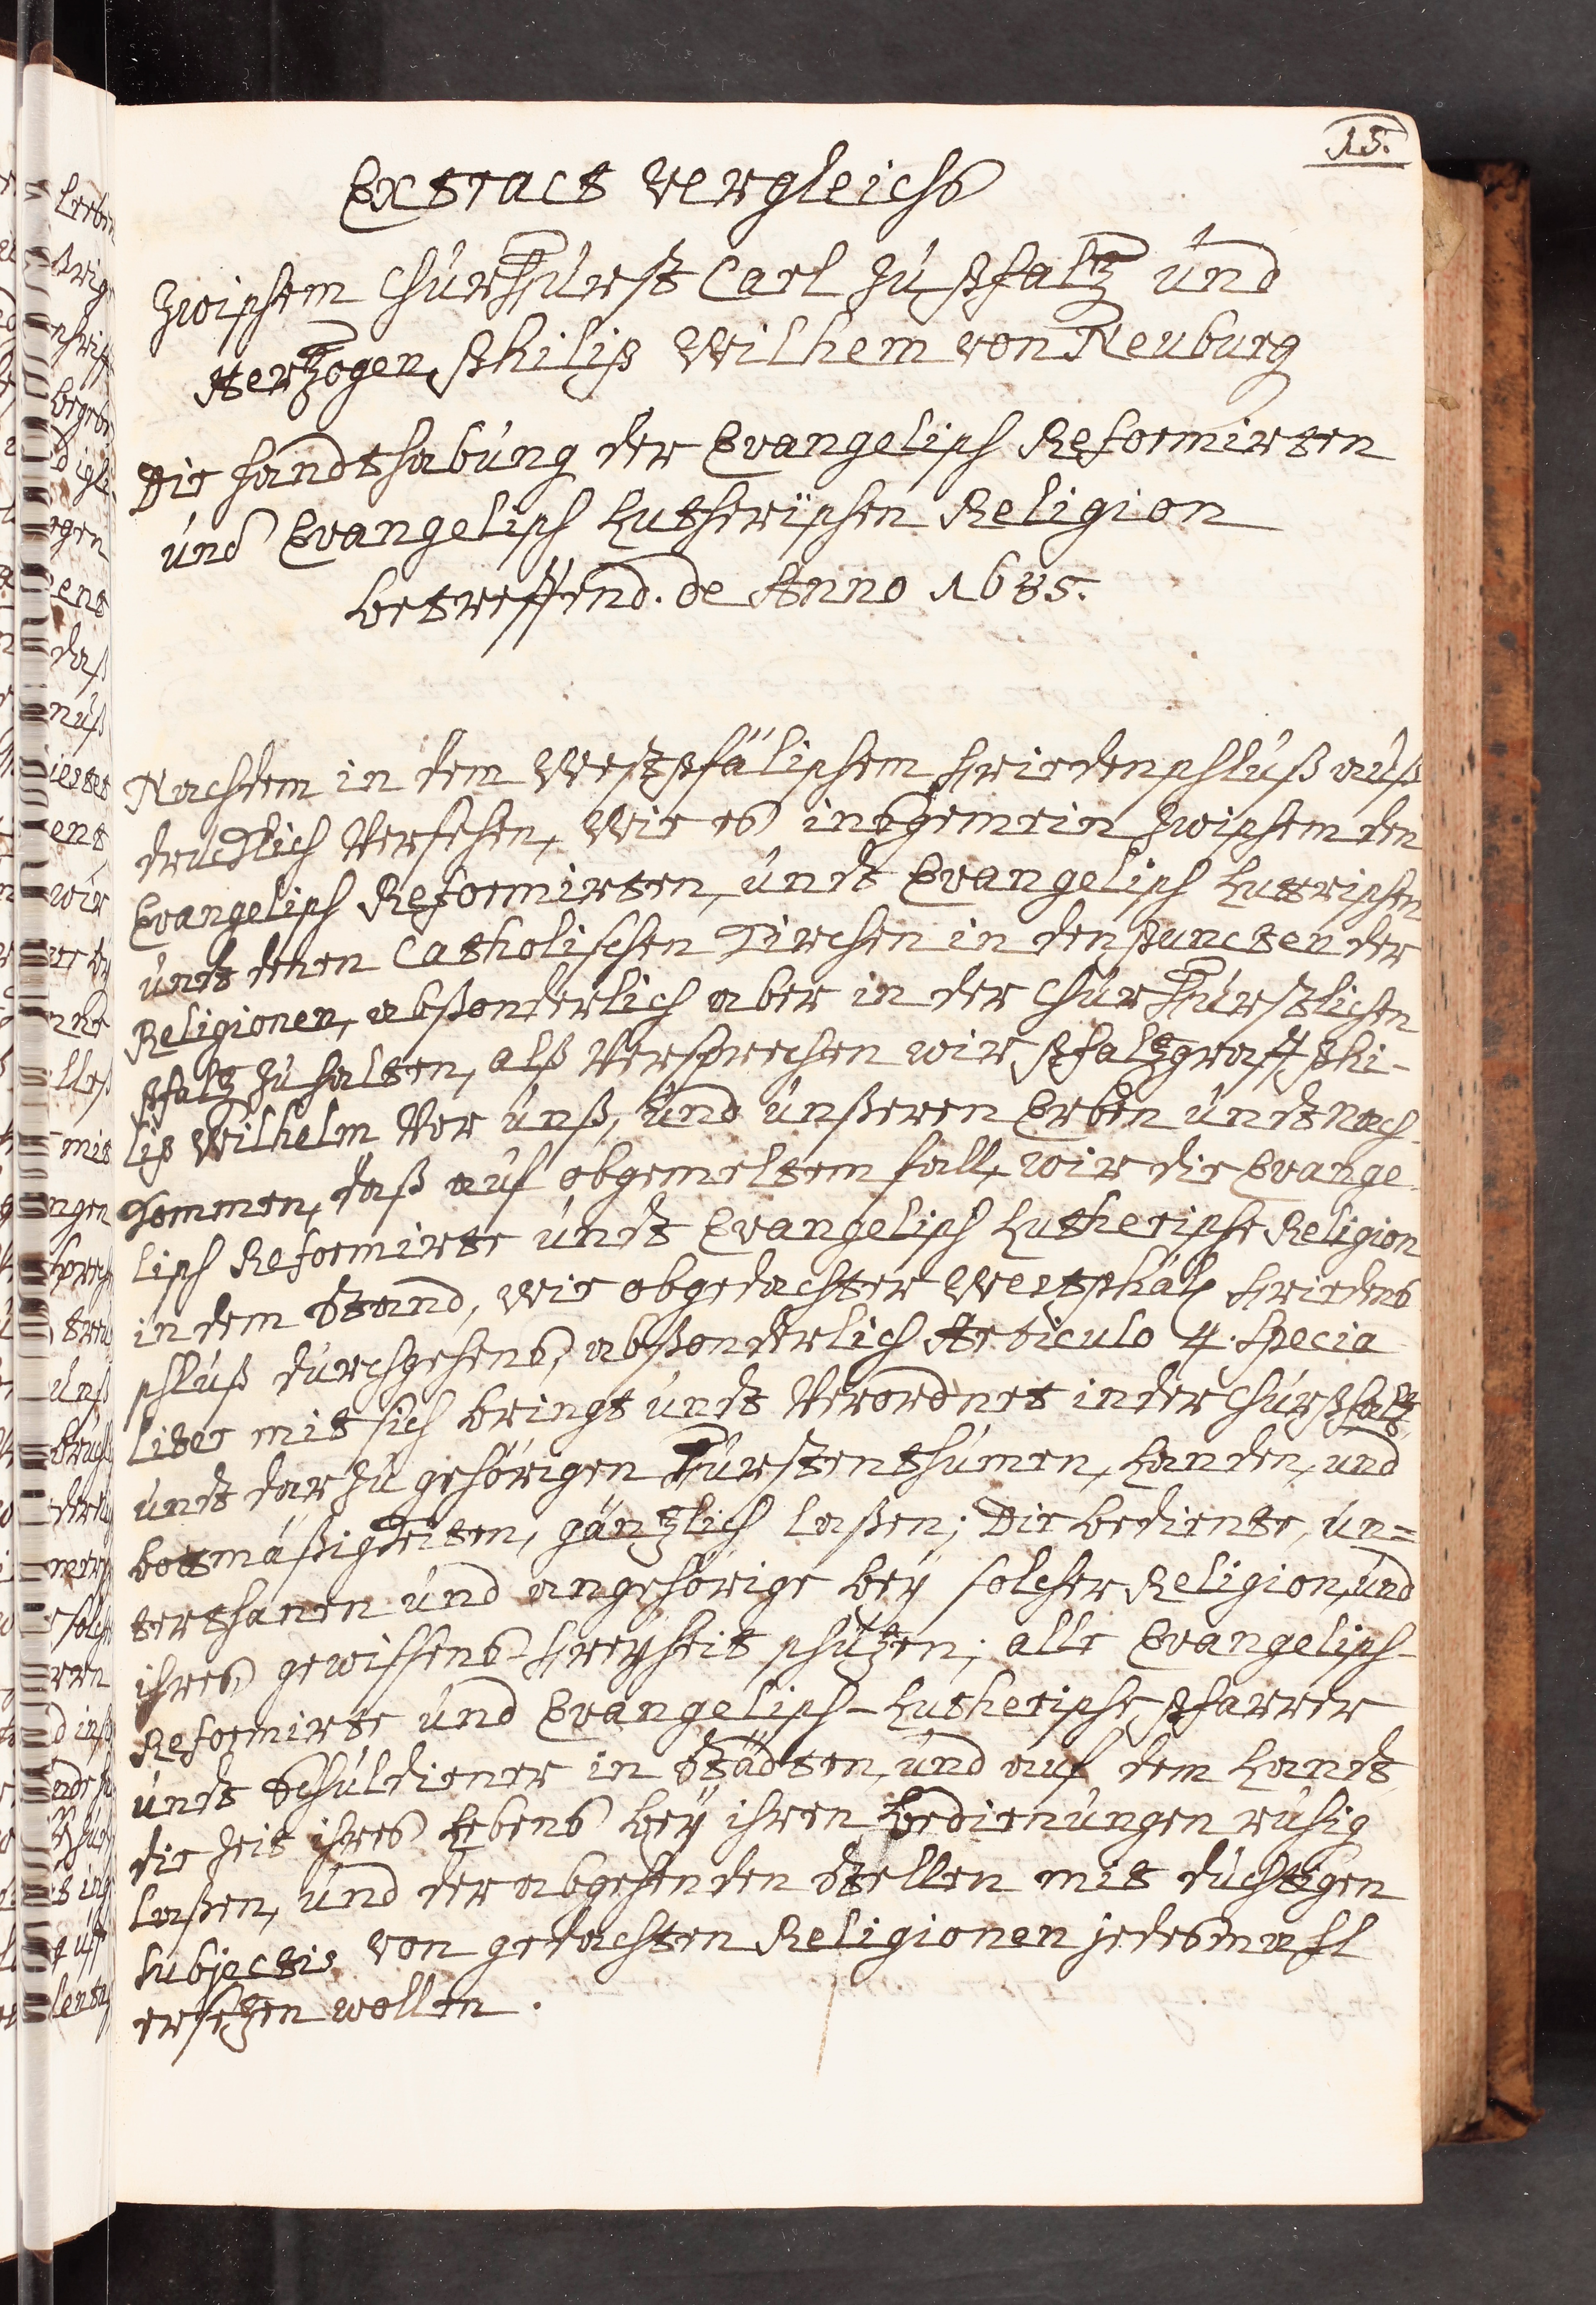 15.
Extract Vergleichs
Zwischem ChurFürst Carl zu Pfaltz und
Hertzogen Philip Wilhem von Neuburg
Die handthabung der Evangelisch Reformirten
und Evangelisch Lutherischen Religion
betreffend. de Anno 1685.
Nachdem in dem Westpfälischem Friedenschluß auß
drucklich Versehen, Wie es insgemein Zwischem den
Evangelisch Reformirten, undt Evangelisch Luttrischen
undt denen Catholischen Kirchen in den Puncten der
Religionen, abßonderlich aber in der ChurFürstlichen
Pfaltz zu halten, alß Versprechen wir Pfaltzgraff Phi-
lip Wilhelm Vor unß, und unßeren Erben undt nach-
kommen, daß auf obgemeltem fall, wir die Evange-
lisch Reformirte undt Evangelisch Lutherische Religion
in dem Stand, wie obgedachter Westphäl. Friedens
schluß durchgehens, abßonderlich Articulo 4. Specia
liter mit sich bringt undt Verordnet in der Churpfaltz,
undt darzu gehörigen Fürstenthümen, Landen, und
botmäßigkeiten, gäntzlich laßen; Die bediente, un=
terthanen und angehörige bey solcher Religion, und
ihres gewissens-Freyheit schützen; alle Evangelisch-
Reformirte und Evangelisch-Lutherische Pfarrer
undt Schuldiener in Städten, und auf dem Landt,
die Zeit ihres Lebens bey ihren bedienungen ruhig
laßen, und der abgehenden Stellen mit düchtigen
Subjectis von gedachten Religionen jedesmahl
ersetzen wollen.